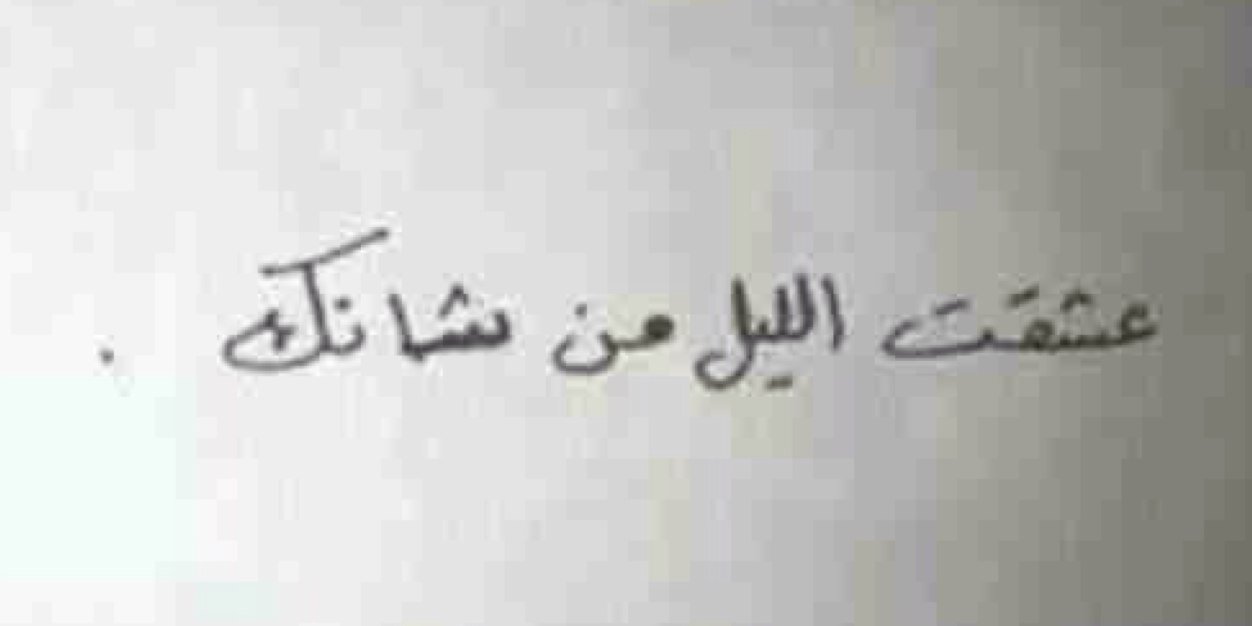 عشقت الليل من شانك .